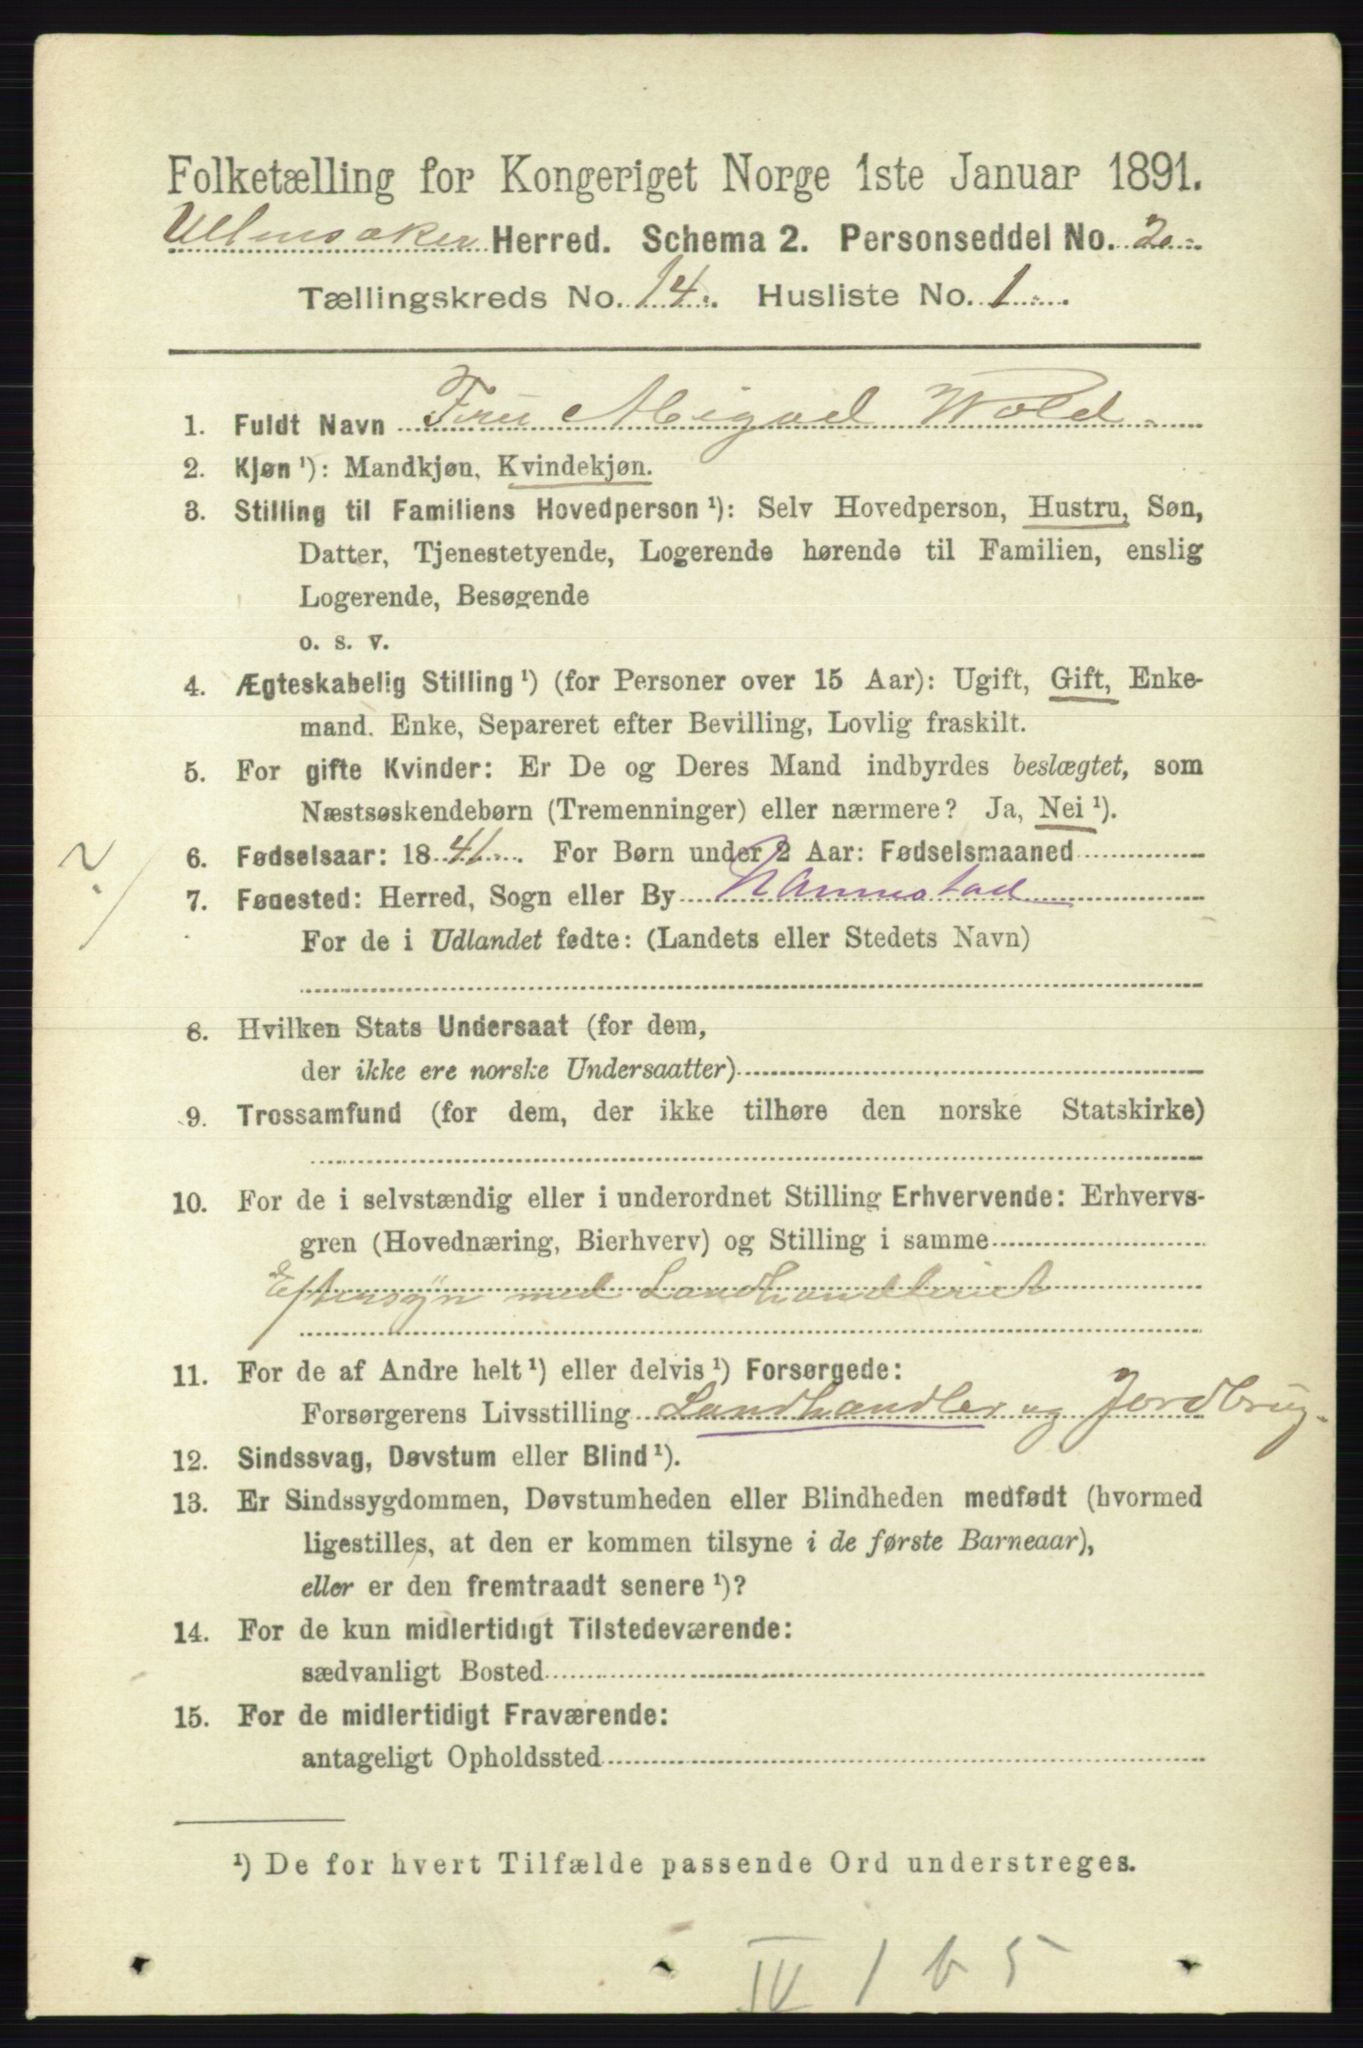 Folketælling for Kongeriget Norge 1ste Januar 1891.
Ullensaker Herred. Schema 2. Personseddel No. 2
Tællingskreds No. 14. Husliste No. 1
1. Fuldt Navn Fru Abigael Wold
2. Kjøn¹): Mandkjøn, Kvindekjøn.
3. Stilling til Familiens Hovedperson¹): Selv Hovedperson, Hustru, Søn,
Datter, Tjenestetyende, Logerende hørende til Familien, enslig
Logerende, Besøgende
o. s. v.
4. Ægteskabelig Stilling¹) (for Personer over 15 Aar): Ugift, Gift, Enke-
mand. Enke, Separeret efter Bevilling, Lovlig fraskilt.
5. For gifte Kvinder: Er De og Deres Mand indbyrdes beslægtet, som
Næstsøskendebørn (Tremenninger) eller nærmere? Ja, Nei¹).
6. Fødselsaar: 1841. For Børn under 2 Aar: Fødselsmaaned
7. Fødested: Herred, Sogn eller By
For de i Udlandet fødte: (Landets eller Stedets Navn)
8. Hvilken Stats Undersaat (for dem,
der ikke ere norske Undersaatter)
9. Trossamfund (for dem, der ikke tilhøre den norske Statskirke)
10. For de i selvstændig eller i underordnet Stilling Erhvervende: Erhvervs-
gren (Hovednæring, Bierhverv) og Stilling i samme
Eftersyn med Landhandleriet
11. For de af Andre helt¹) eller delvis¹) Forsørgede:
Forsørgerens Livsstilling Landhandler og Jordbrug.
12. Sindssvag, Døvstum eller Blind¹).
13. Er Sindssygdommen, Døvstumheden eller Blindheden medfødt (hvormed
ligestilles, at den er kommen tilsyne i de første Barneaar),
eller er den fremtraadt senere¹)?
14. For de kun midlertidigt Tilstedeværende:
sædvanligt Bosted
15. For de midlertidigt Fraværende:
antageligt Opholdssted
¹) De for hvert Tilfælde passende Ord understreges.
IV 1 b 5